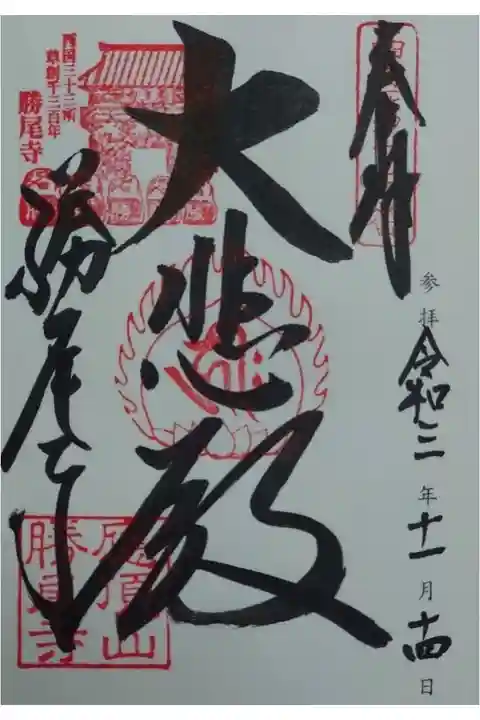 奉拝
参拝 令和三年十一月十四日
大悲殿
西国三十三所
草創千三百年
勝尾寺
勝尾寺
應頂山
勝尾寺